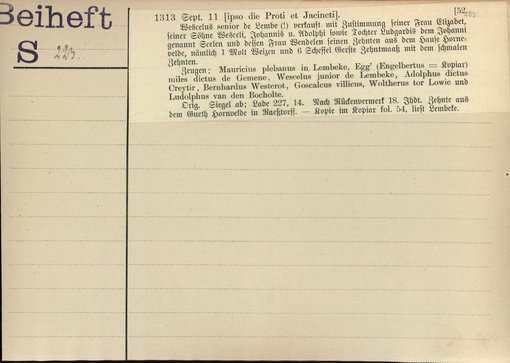 Beiheft
S 223.
1313 Sept. 11 [ipso die Proti et Jacincti]. [52
Wescelus senior de Lembe (!) verkauft mit Zustimmung seiner Frau Elizabet,
seiner Söhne Wesceli, Johannis u. Adolphi sowie Tochter Ludgardis dem Johanni
genannt Seelen und dessen Frau Wendelen seinen Zehnten aus dem Hause Horne-
velde, nämlich 1 Molt Weizen und 6 Scheffel Gerste Zehntmaaß mit dem schmalen
Zehnten.
Zeugen: Mauricius plebanus in Lembeke, Egg' (Engelbertus = Kopiar)
miles dictus de Gemene, Wescelus junior de Lembeke, Adolphus dictus
Creytir, Bernhardus Westerot, Goscalcus villicus, Woltherus tor Lowic und
Ludolphus van den Bocholte.
Orig. Siegel ab; Lade 227, 14. Nach Rückenvermerk 18. Jhdt. Zehnte aus
dem Gueth Hornvelde in Raesforff. — Kopie im Kopiar fol. 54, liest Lembeke.